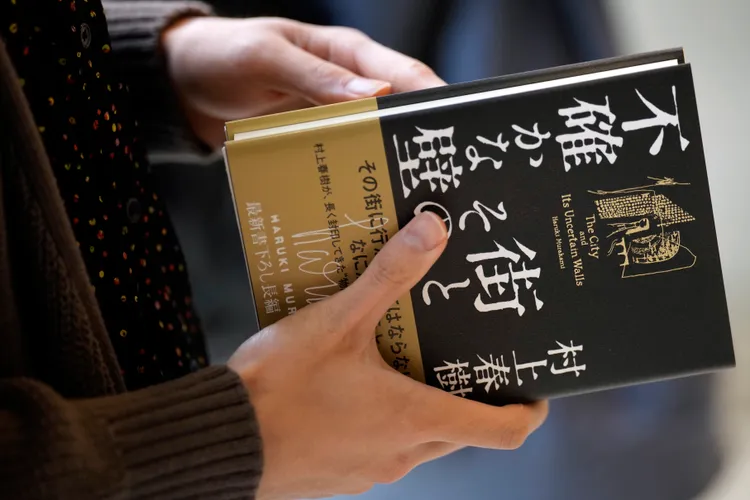 村上春樹
街と
その
不確かな壁
The City
and
Its Uncertain Walls
Haruki Murakami
その街に行
なに
はならな
村上春樹が、長く封印してきた
HARUKI MUR
最新書下ろし長編